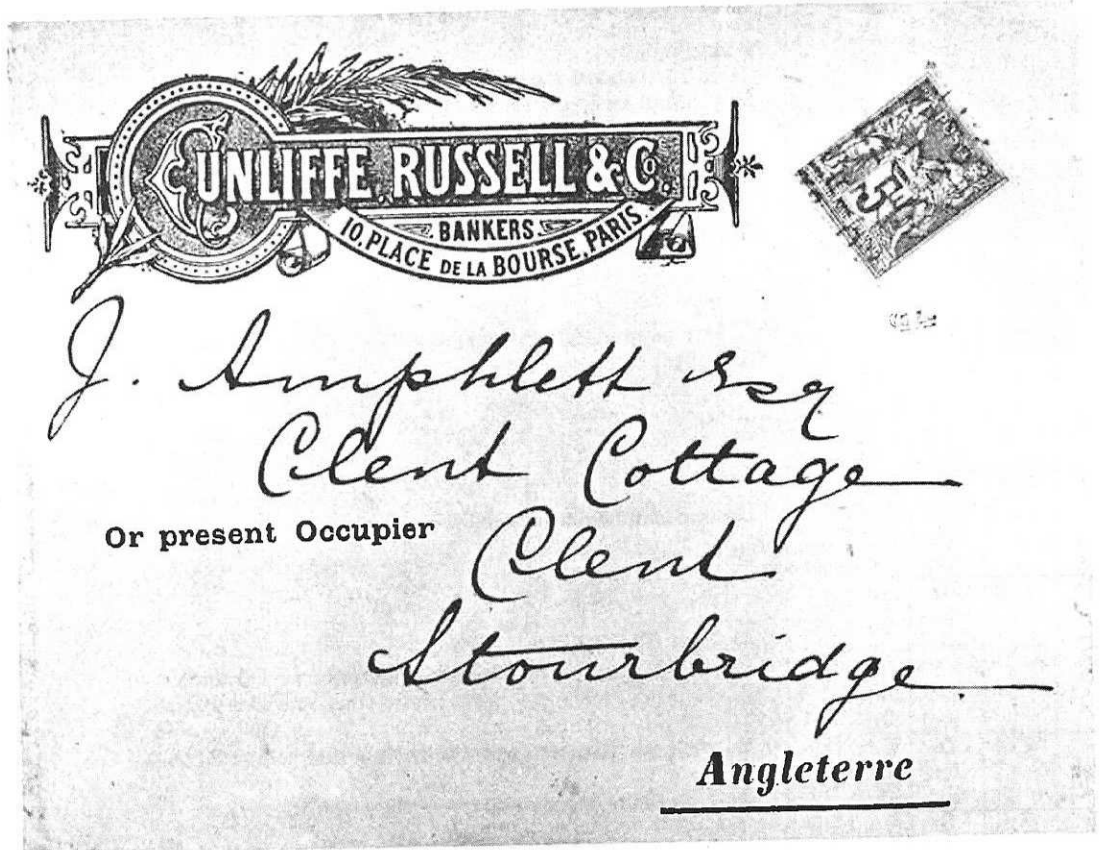 CUNLIFFE, RUSSELL & Co.
BANKERS
10, PLACE DE LA BOURSE, PARIS.
5
J. Amphlett Esq
Clent Cottage
Or present Occupier
Clent
Stourbridge
Angleterre